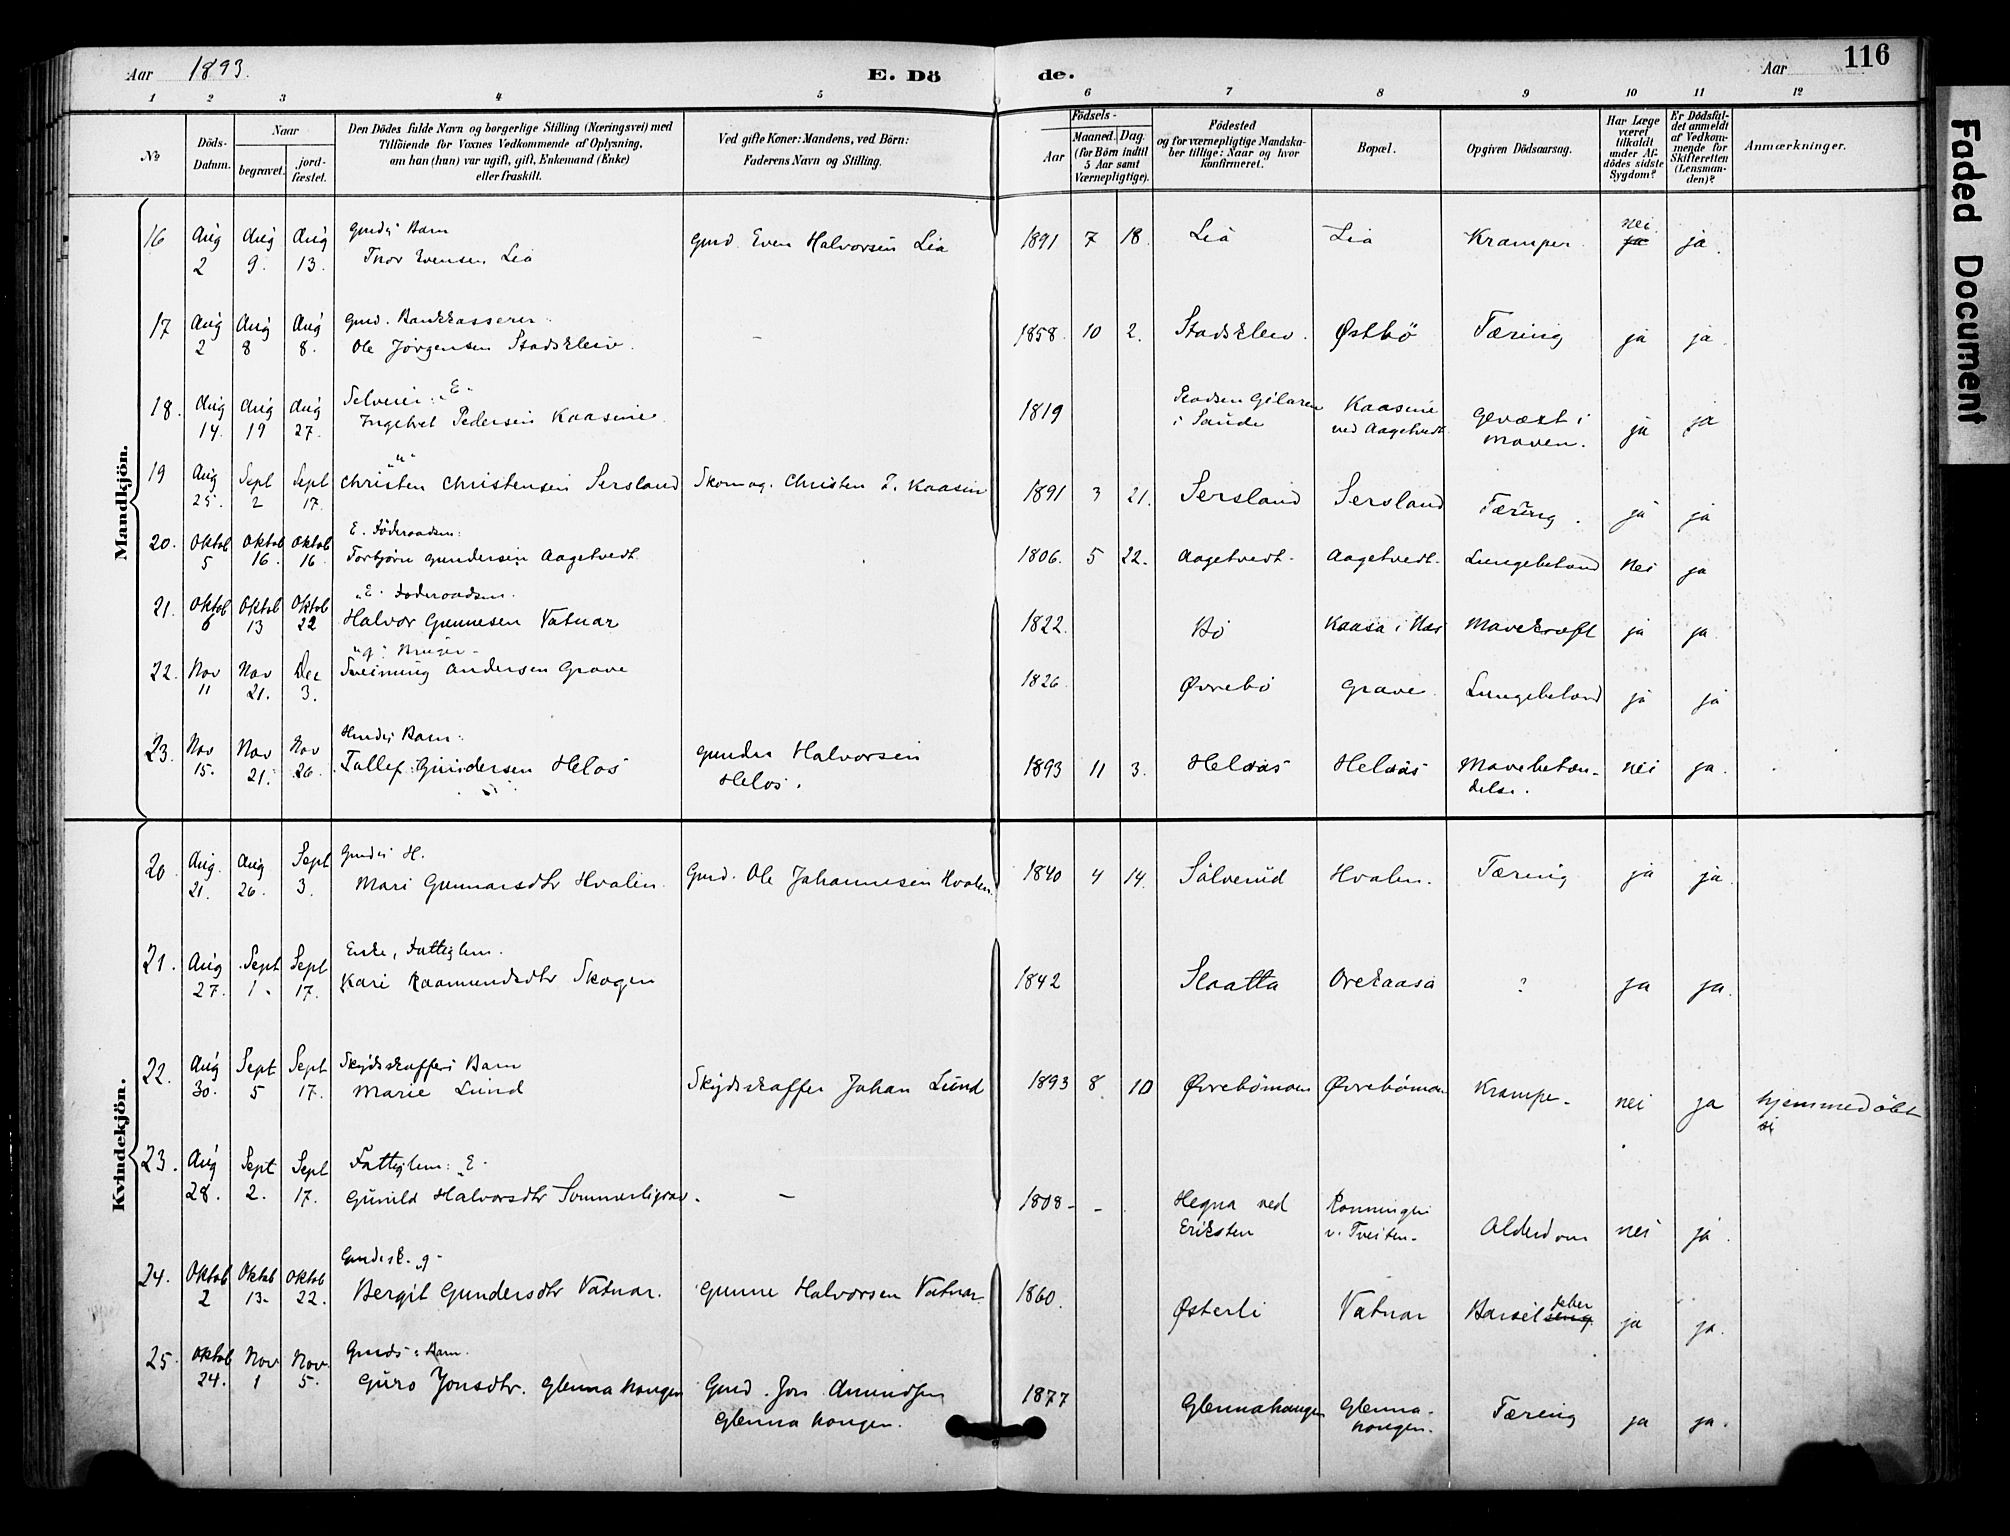 Aar 1893.
E. Döde.
Aar
116
Faded Document
1 2 3 4 5 6 7 8 9 10 11 12
No
Döds-Datum.
Naar
begravet.
jord-fæstet.
Den Dödes fulde Navn og borgerlige Stilling (Næringsvei) med
Tilföiende for Voxnes Vedkommende af Oplysning,
om han (hun) var ugift, gift, Enkemand (Enke)
eller fraskilt.
Ved gifte Koner: Mandens, ved Börn:
Faderens Navn og Stilling.
Födsels-
Aar
Maaned. Dag.
(for Börn indtil
5 Aar samt
Værnepligtige).
Födested
og for værnepligtige Mandska-
ber tillige: Naar og hvor
konfirmeret.
Bopæl.
Opgiven Dödsaarsag.
Har Læge
været
tilkaldt
under Af-
dödes sidste
Sygdom?
Er Dödsfal-
det anmeldt
af Vedkom-
mende for
Skifteretten
(Lensman-
den)?
Anmærkninger.
Mandkjön.
16 Aug 2 Aug 9. Aug 13. Gmds Barn
Thor Evensen Lia Gmd. Even Halvorsen Lia 1891 7 18. Lia Lia Kramper. nei ja ja.
17 Aug 2 Aug 8 Aug 8. Gmd. Bankkasserer.
Ole Jörgensen Stadskleiv. - 1858 10 2. Stadskleiv. Østbö Tæring ja ja.
18. Aug 14. Aug 19 Aug 27. Selveier "E"
Ingebret Pedersen Kaasene 1819 i Saude Kaasene
ved Aagetvedt Gevæxt i
Maven. ja ja
19 Aug 25. Sept 2 Sept 17. Christen Christensen Sersland Skomag. Christen P. Kaasen 1891 3 21. Sersland Sersland Tæring. ja ja
20. Oktob 5 Oktob 16. Oktob 16. E. Föderaadsm.
Torbjörn Gundersen Aagetvedt. 1806. 5 22. Aagetvedt. Aagetvedt. Lungebetænd nei ja
21. Oktob 6 Oktob 13 Oktob 22 "E. Föderaadsm.
Halvor Gunnesen Vatnar 1822. Bö Kaasa i Næs Mavekræft ja ja
22. Nov 11 Nov 21. Dec 3. "g." Bruger
Sveinung Andersen Grave 1826 Øvrebö Grave. Lungebetænd ja ja
23. Nov 15. Nov 21. Nov 26. Hmds Barn.
Tallef Gundersen Helös Gunder Halvorsen
Helös. 1893 11 3. Helaas Helaas Mavebetæn-
delse. nei ja.
Kvindekjön.
20 Aug. 21. Aug 26. Sept 3. Gmds H.
Mari Gunnarsdtr Hvalen. Gmd. Ole Johannesen Hvalen. 1840 4 14. Sölverud Hvalen. Tæring ja ja.
21. Aug 27. Sept 1. Sept 17. Enke, Fattiglem.
Kari Raamundsdtr Skogen 1842 Slaatta Orekaasa ? ja ja.
22. Aug 30. Sept 5 Sept 17. Skydsskaffers Barn
Marie Lund Skydsskaffer Johan Lund 1893 8 10 Øvrebömoen Øvrebömoen Krampe- nei ja hjemmedöbt
23. Aug 28. Sept 2. Sept 17. Fattiglem: E.
Gunild Halvorsdtr Sommerligrav. - 1808- - Hegna ved
Eriksten Rönningen
v. Tveiten- Alderdom nei ja.
24. Oktob 2 Oktob 13- Oktob 22. Gmdsk. g-
Bergit Gundersdtr Vatnar. Gunne Halvorsen Vatnar 1860. Østerli Vatnar Barselseng feber ja ja.
25. Oktob 24. Nov 1 Nov. 5. Gmds. Barn.
Guro Jonsdtr. Glennahaugen Gmd. Jon Amundsen
Glennahaugen. 1877 Glennahaugen Glenna-
haugen. Tæring ja ja.